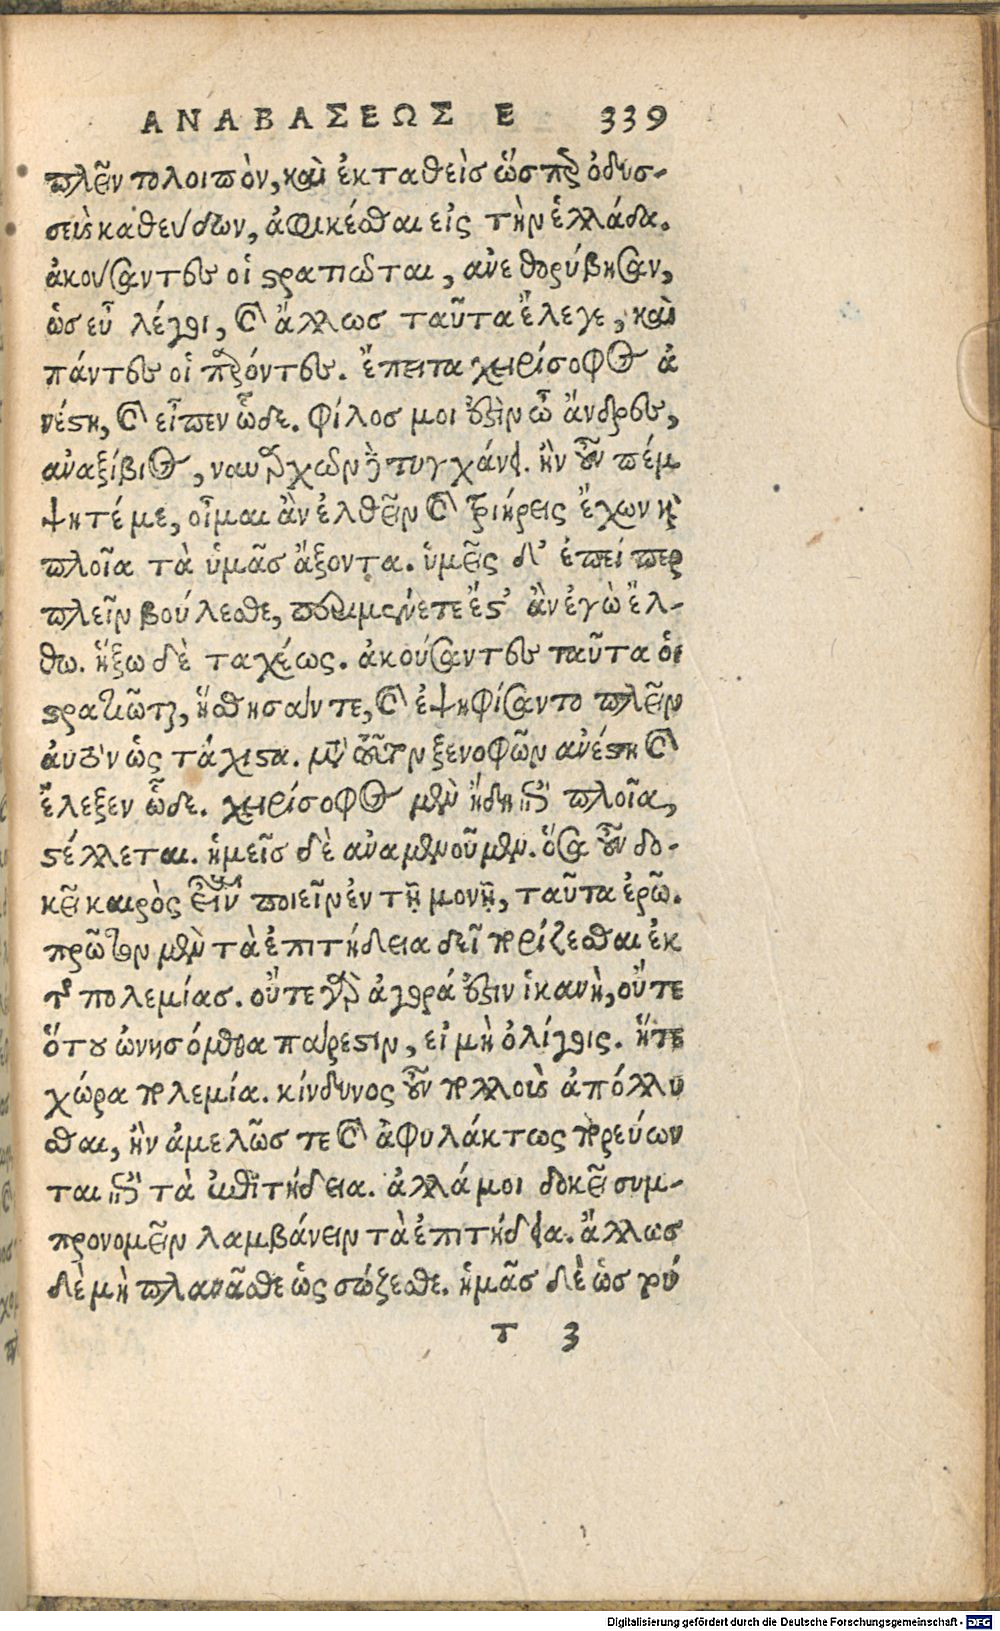 ΑΝΑΒΑΣΕΩΣ Ε 339
πλεῖν τολοιπὸν, καὶ ἐκταθεὶς ὥσπερ ὀδυσ-
σεὺς καθεύδων, ἀφικέσθαι εἰς τὴν ἑλλάδα.
ἀκούσαντες οἱ στρατιῶται, ἀνεθορύβησαν,
ὡς εὖ λέγοι, καὶ ἄλλως ταῦτα ἔλεγε, καὶ
πάντες οἱ παρόντες. ἔπειτα χειρίσοφος ἀ
νέστη, καὶ εἶπεν ὧδε. φίλος μοι ἐστὶν ὦ ἄνδρες,
ἀναξίβιος, ναυαρχῶν δὲ τυγχάνει. ἢν οὖν πέμ
ψητέ με, οἶμαι ἂν ἐλθεῖν καὶ τριήρεις ἔχων καὶ
πλοῖα τὰ ὑμᾶς ἄξοντα. ὑμεῖς δ' ἐπείπερ
πλεῖν βούλεσθε, περιμένετε ἔστ' ἂν ἐγὼ ἔλ-
θω. ἥξω δὲ ταχέως. ἀκούσαντες ταῦτα οἱ
στρατιῶται, ἥσθησάν τε, καὶ ἐψηφίσαντο πλεῖν
αὐτὸν ὡς τάχιστα. μετὰ τοῦτον ξενοφῶν ἀνέστη καὶ
ἔλεξεν ὧδε. χειρίσοφος μὲν ἤδη ἐπὶ πλοῖα,
στέλλεται. ἡμεῖς δὲ ἀναμενοῦμεν. ὅσα οὖν δο-
κεῖ καιρὸς εἶναι ποιεῖν ἐν τῇ μονῇ, ταῦτα ἐρῶ.
πρῶτον μὲν τὰ ἐπιτήδεια δεῖ πορίζεσθαι ἐκ
τῆς πολεμίας. οὔτε γὰρ ἀγορά ἐστιν ἱκανὴ, οὔτε
ὅτου ὠνησόμεθα πάρεστιν, εἰ μὴ ὀλίγοις. ἥτε
χώρα πολεμία. κίνδυνος οὖν πολλοὺς ἀπόλλυ
σθαι, ἢν ἀμελῶς τε καὶ ἀφυλάκτως πορεύων
ται ἐπὶ τὰ ἐπιτήδεια. ἀλλά μοι δοκεῖ συμ-
προνομεῖν λαμβάνειν τὰ ἐπιτήδεια. ἄλλως
δὲ μὴ πλανᾶσθε ὡς σώζεσθε. ἡμᾶς δὲ ὡς
τ 3
Digitalisierung gefördert durch die Deutsche Forschungsgemeinschaft - DFG